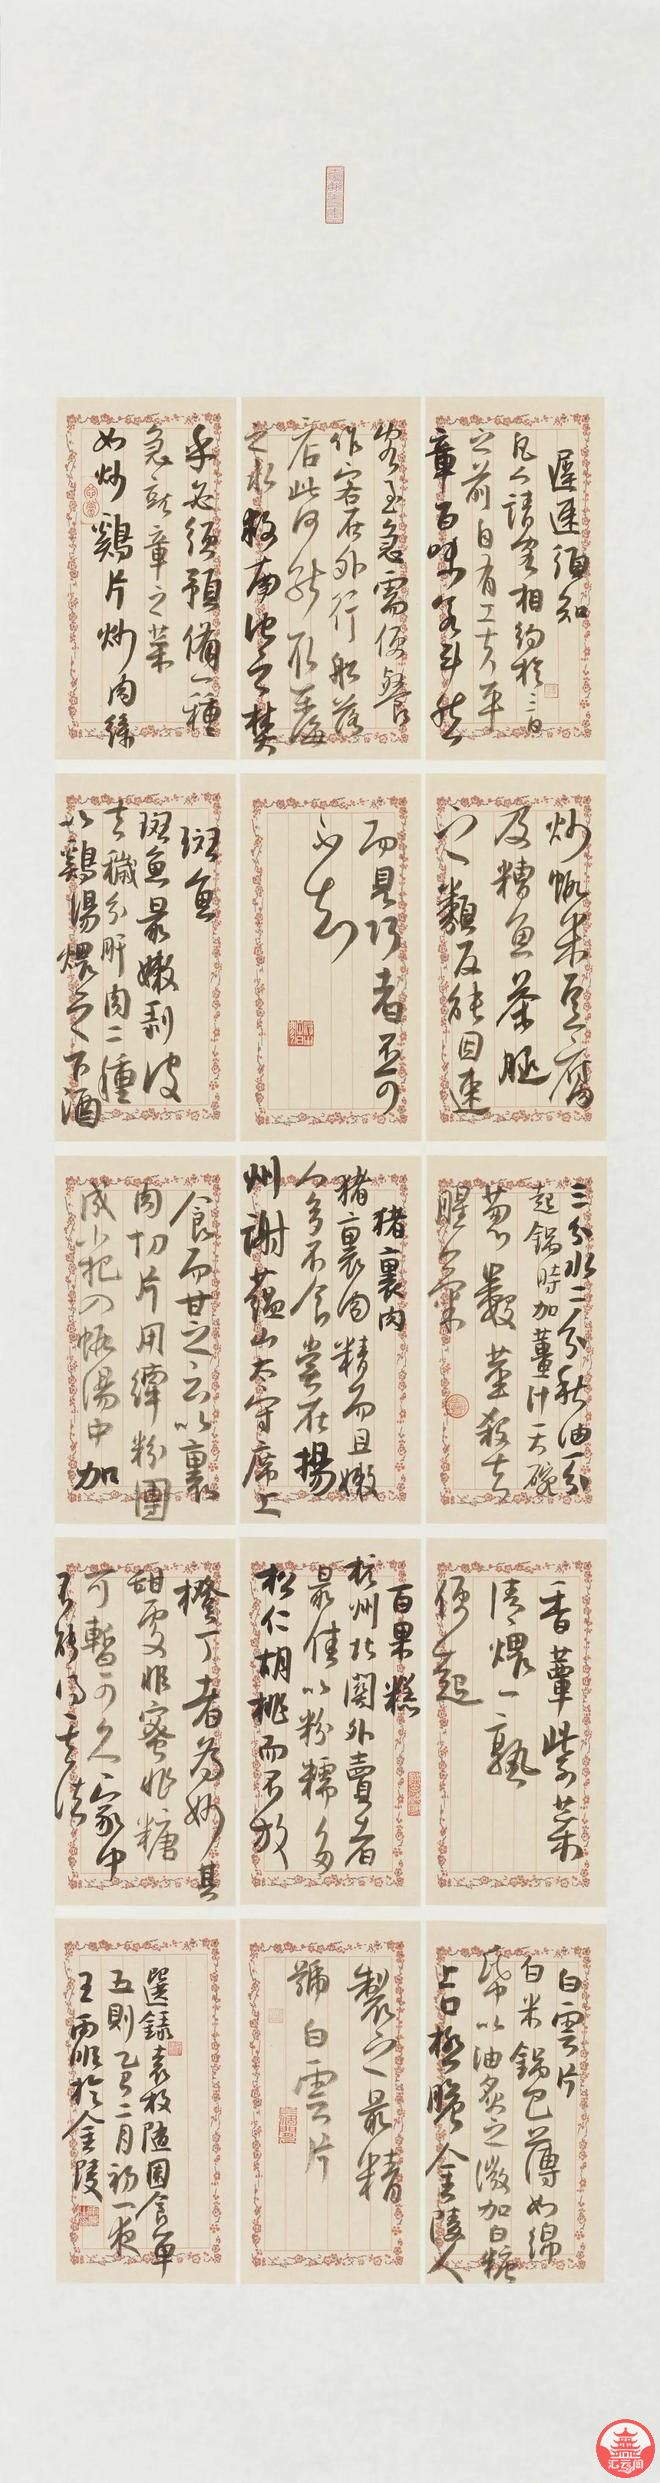 遲速須知
凡人請客相約於三日
之前自有工夫平
章百味若斗然
客至急需便餐
作客在外行船落
店此何能取東海
之水救南池之焚
乎必須預備一種
急就章之菜
如炒鷄片炒肉絲
炒蝦米豆腐
及糟魚茶腿
之類反能因速
而見巧者不可
不知
斑魚
斑魚最嫩剥皮
去穢分肝肉二種
以鷄湯煨之下酒
三分水二分秋油一分
起鍋時加薑汁一大碗
葱數莖殺去
腥氣
猪裏肉
猪裏肉精而且嫩
人多不食嘗在揚
州謝藴山太守席上
食而甘之云以裏
肉切片用縴粉團
成小把入蝦湯中加
香蕈紫菜
清煨一熟
便起
百果糕
杭州北關外賣者
最佳以粉糯多
松仁胡桃而不放
橙丁者為妙其
甜處非蜜非糖
可暫可久家中
不能得其法
白雲片
白米鍋巴薄如綿
紙以油炙之微加白糖
上口極脆金陵人
製之最精
號白雲片
選録袁枚隨園食單
五則乙巳二月初一夜
王雨順於金陵
汇云阁